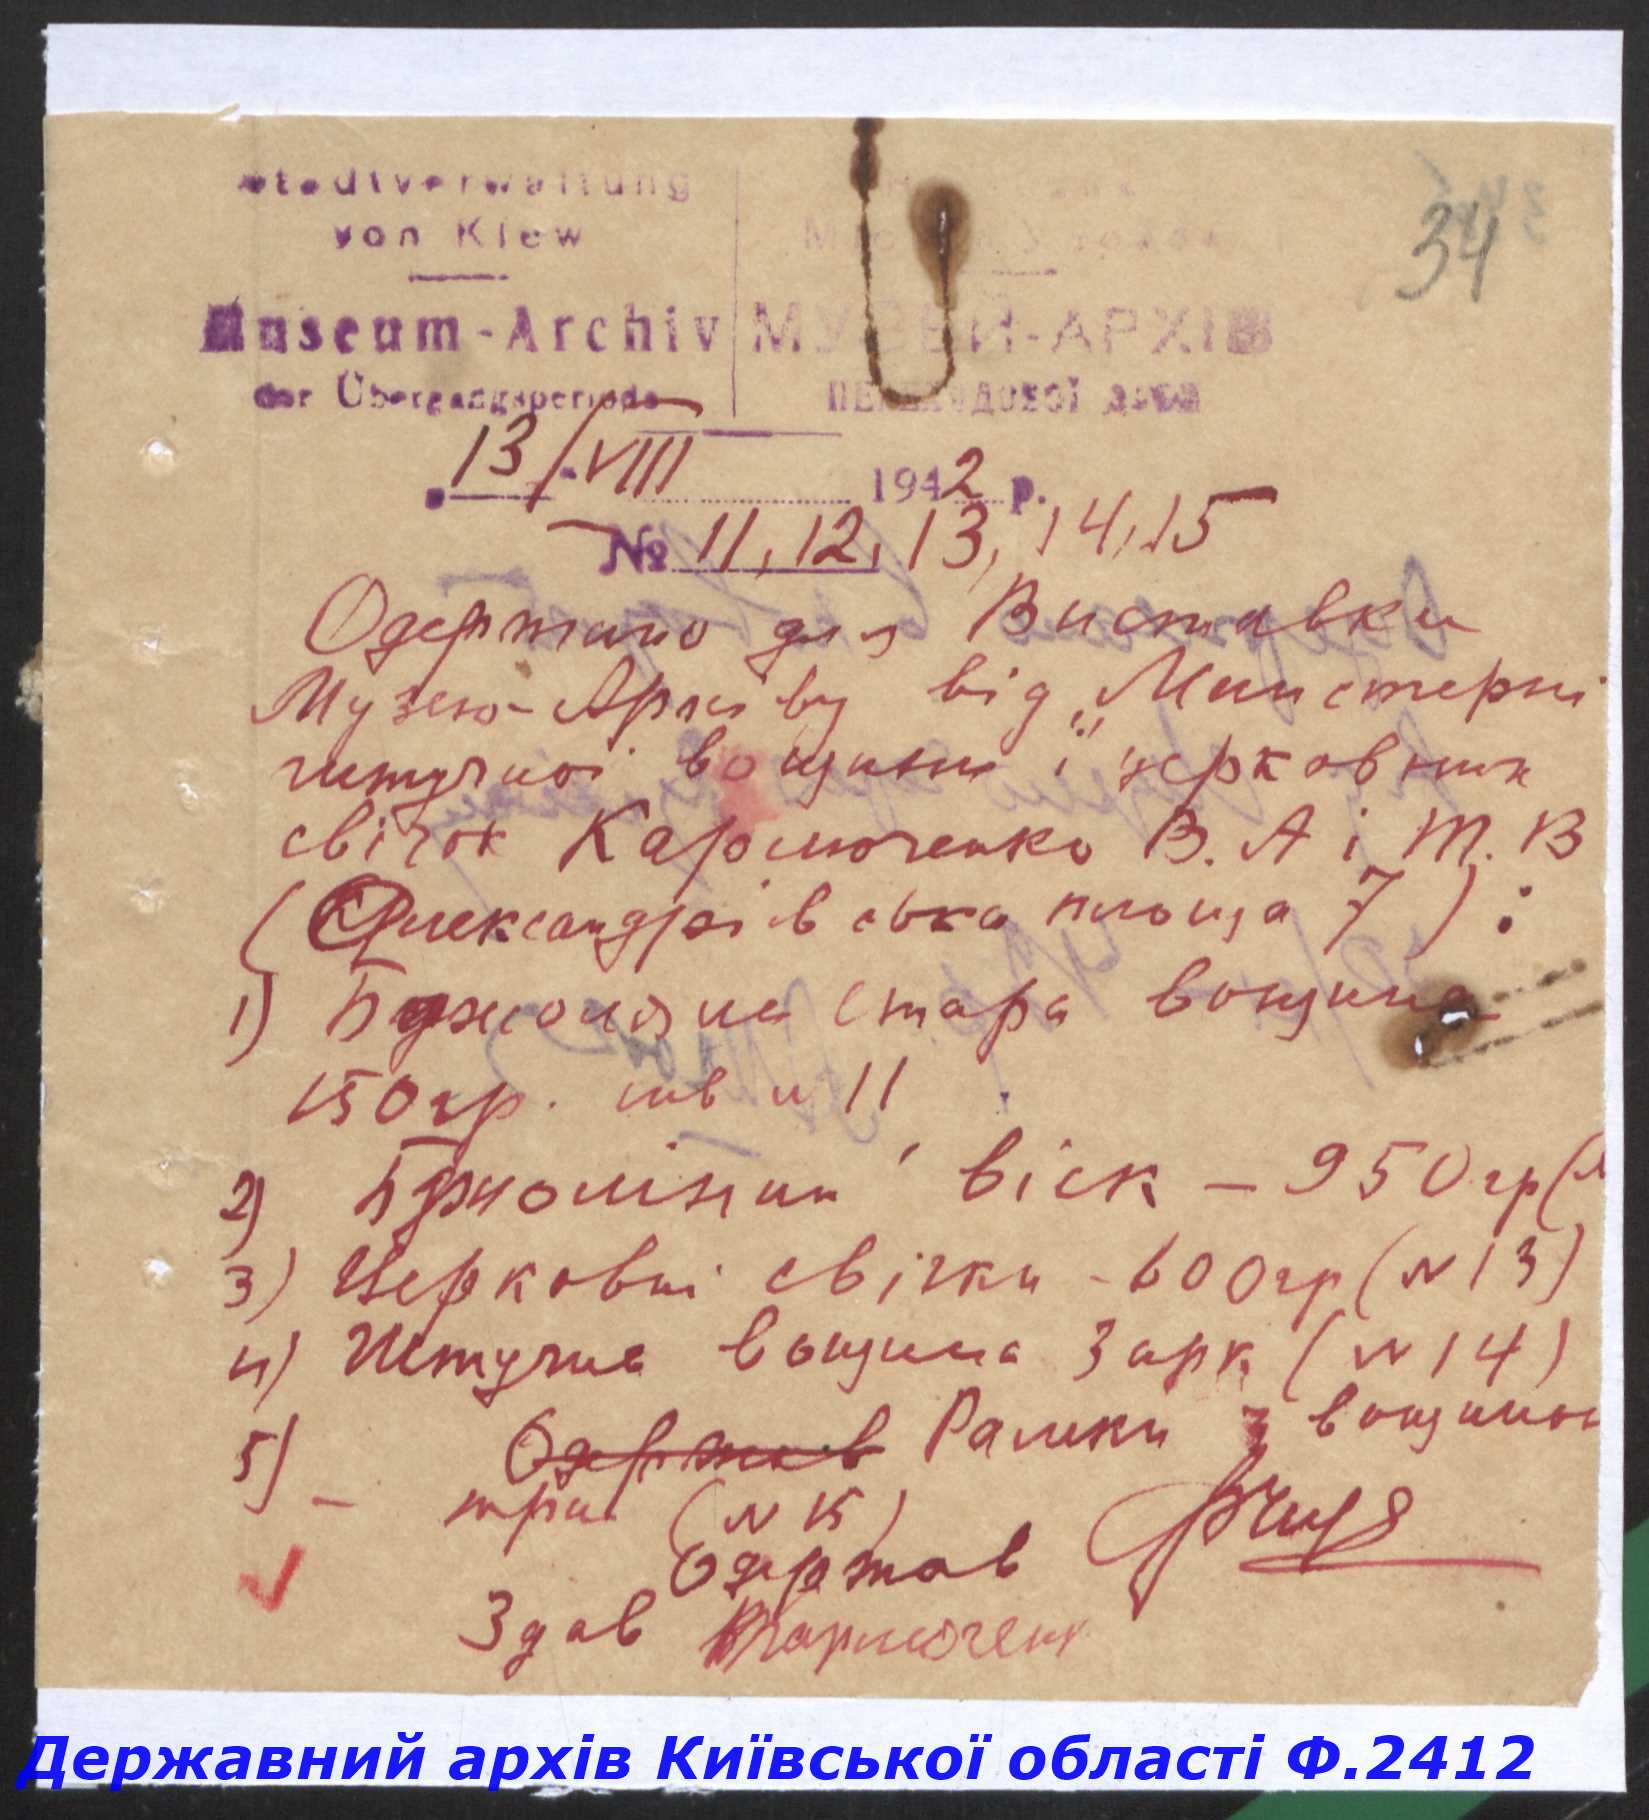 Stadtverwaltung
von Kiew
34
Museum-Archiv МУЗЕЙ-АРХІВ
der Übergangsperiode ПЕРЕХОДОВОЇ доби
13/VIII 1942 р.
№ 11, 12, 13, 14, 15
Одержано для Виставки
Музею-Архіву від „Майстерні
штучної вощини і церковних
свічок Кармюченко В. А і Т. В
(Олександрівська площа 7):
1) Бджоляна стара вощина
150 гр. інв № 11
2) Бджоляний віск – 950 гр (
3) Церковні свічки - 600 гр (№ 13)
4) Штучна вощина 3 арк (№ 14)
5) Одержав Рамки з вощиною
– три (№ 15)
Одержав
Здав Кармюченко
Державний архів Київської області Ф.2412